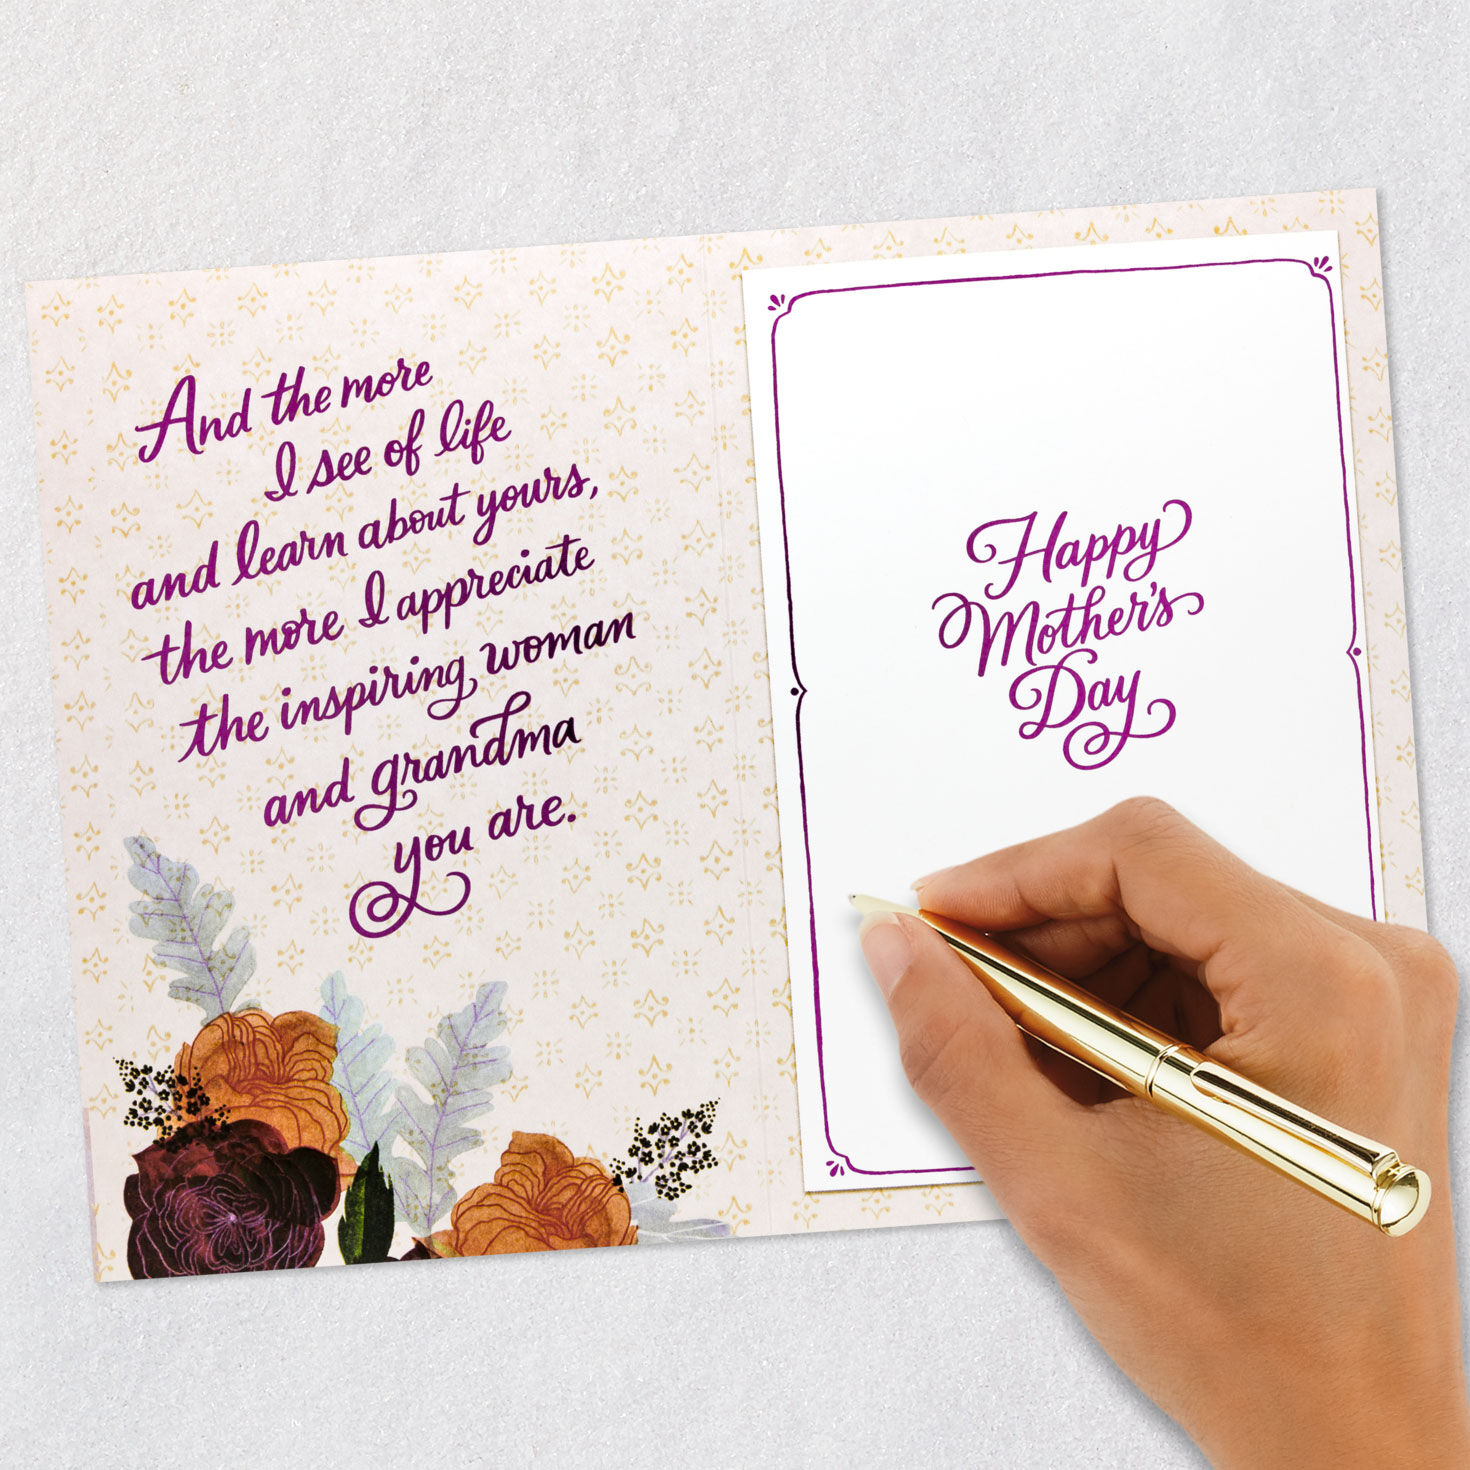 And the more
I see of life
and learn about yours,
the more I appreciate
the inspiring woman
and grandma
you are.
Happy
Mother's
Day